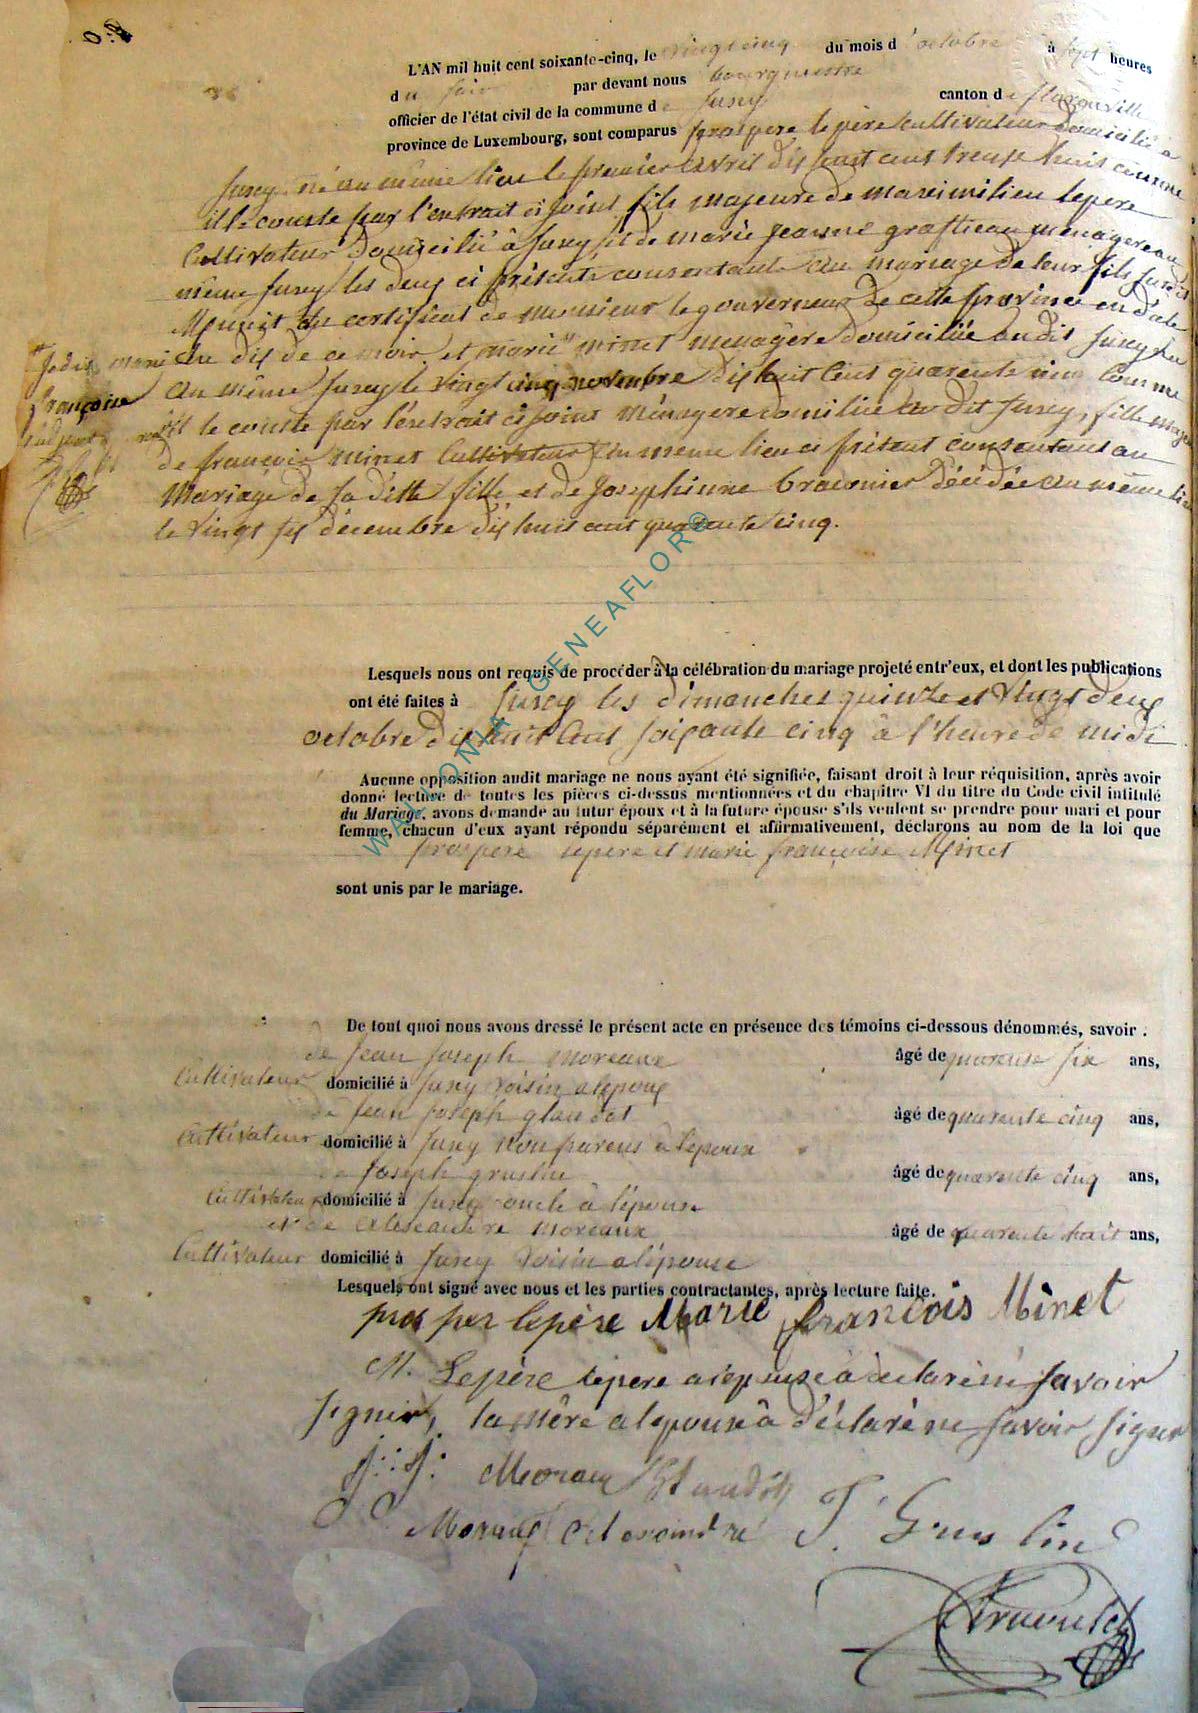 L'AN mil huit cent soixante-cinq, le vingt cinq du mois d'octobre à sept heures
du soir par devant nous bourgmestre
officier de l'état civil de la commune de Jusey canton de florenville
province de Luxembourg, sont comparus prospere lepère Cultivateur domicilié a
Jusey né au même lieu le premier avril dix huit cent trense huit comme
il le conste par l'extrait ci joint fils majeure de maximilien lepere
Cultivateur domicilié à Jusey et de marie jeanne menagere au
même Jusey les deux ci présents consentant au mariage de leur fils susdit
Munit du certificat de monsieur le gouverneur de cette province en date
du dix de ce mois et marie minet menagère domiciliée au dit Jusey née
au même Jusey le vingt cinq novembre dix huit cent quarente comme
il le conste par l'extrait ci joint ménagere domiliée au dit Jusey, fille
de françois minet Cultivateur au meme lieu ci présent consentant au
Mariage de sa ditte fille et de Josephinne braconnier décédée au même lieu
le vingt six décembre dix huit cent quarante cinq.
françoise
Lesquels nous ont requis de procéder à la célébration du mariage projeté entr'eux, et dont les publications
ont été faites à Jusey les dimanches quinze et vingt deux
octobre dix huit cent soixante cinq à l'heure de midi
Aucune opposition audit mariage ne nous ayant été signifiée, faisant droit à leur réquisition, après avoir
donné lecture de toutes les pièces ci-dessus mentionnées et du chapitre VI du titre du Code civil intitulé
du Mariage, avons demande au futur époux et à la future épouse s'ils veulent se prendre pour mari et pour
femme, chacun d'eux ayant répondu séparément et affirmativement, déclarons au nom de la loi que
prospere lepere et marie françoise Minet
sont unis par le mariage.
De tout quoi nous avons dressé le présent acte en présence des témoins ci-dessous dénommés, savoir :
de Jean Joseph moreaux âgé de quarente six ans,
Cultivateur domicilié à Jusey voisin a lepoux
de Jean Joseph glaudot âgé de quarente cinq ans,
Cultivateur domicilié à Jusey non parens a lepoux
de Joseph gruslin âgé de quarente cinq ans,
Cultivateur domicilié à Jusey oncle à lépouse
et de alexandre moreaux âgé de quarente huit ans,
Cultivateur domicilié à Jusey voisin a lépouse
Lesquels ont signé avec nous et les parties contractantes, après lecture faite.
prosper lepère Marie françois Minet
M. Lepère lepere a déclaré ne savoir
signer, la mère a lepouse à déclaré ne savoir signer
J: J: Moreau
J. Gruslin
WALLONIA GENEAFLOR©